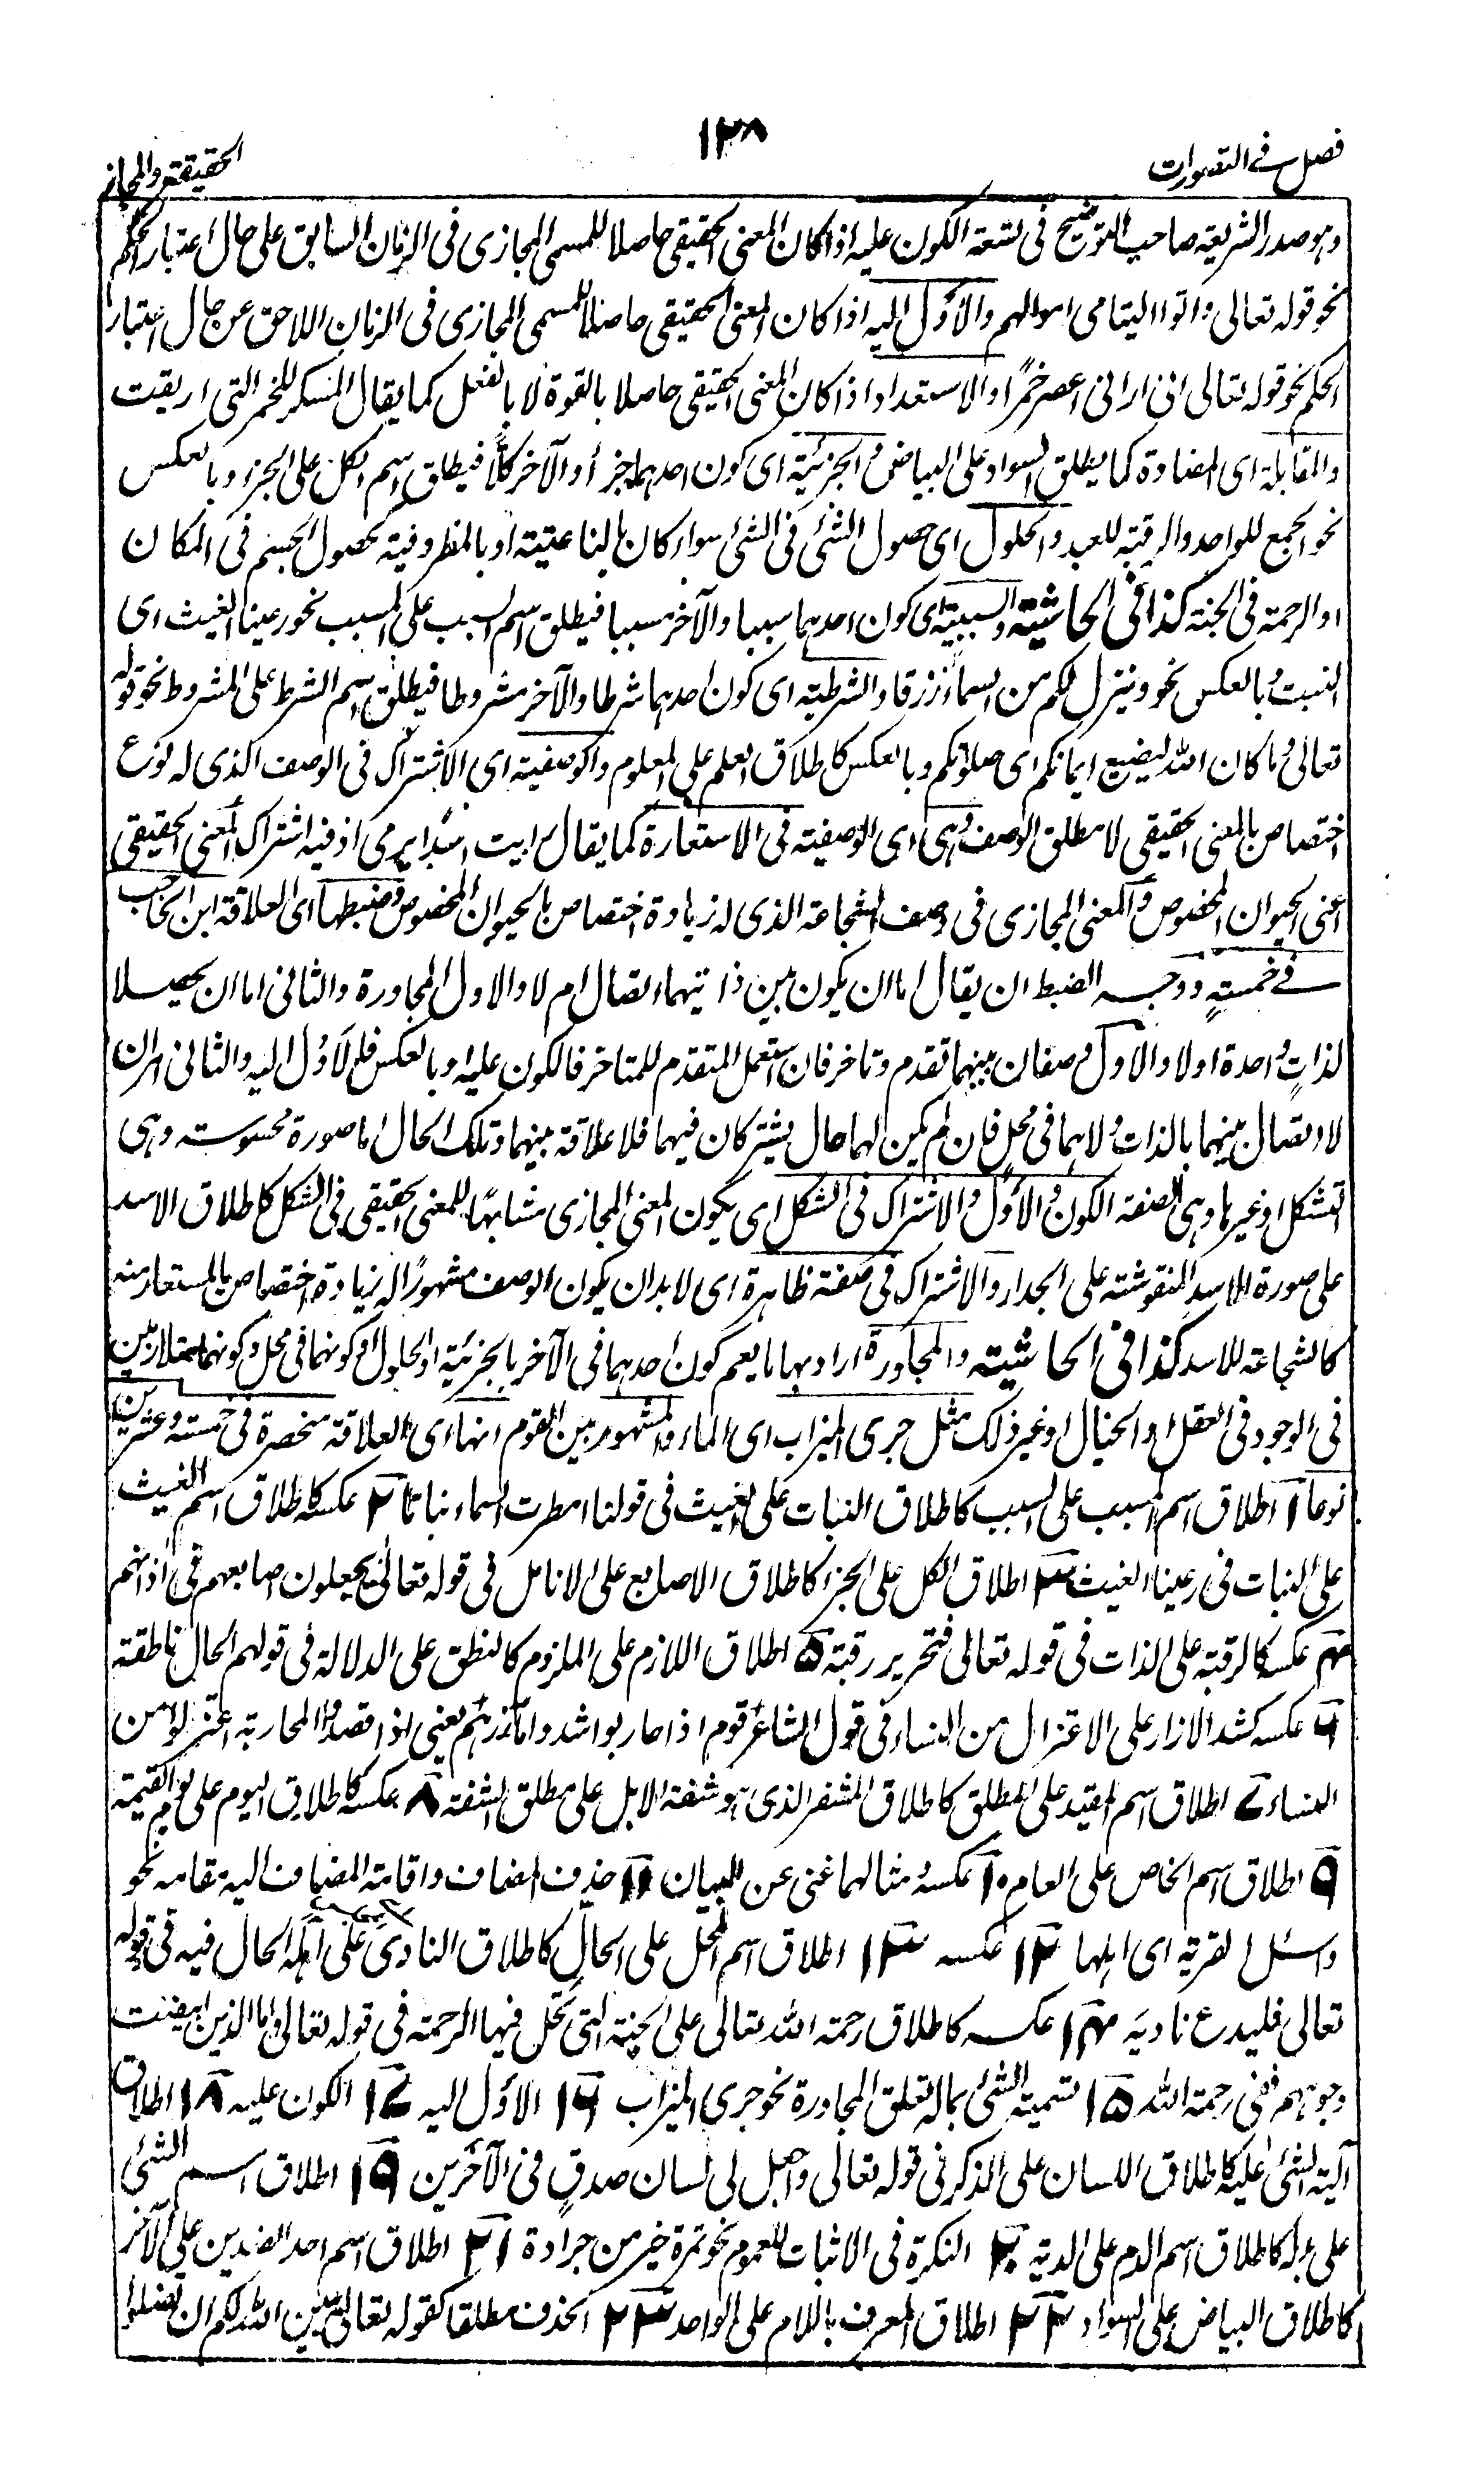 فصل فی التصورات
١٢٨
الحقیقة والمجاز
وهو صدر الشریعة صاحب التوضیح فی تسعة الکون علیه اذا کان المعنی الحقیقی حاصلا للمسمی المجازی فی الزمان السابق علی حال اعتبار الحکم
نحو قوله تعالی واٰتوا الیتامی اموالهم والاَوْل الیه اذا کان المعنی الحقیقی حاصلا للمسمی المجازی فی الزمان اللاحق عن حال اعتبار
الحکم نحو قوله تعالی انی ارانی اعصر خمرًا والاستعداد اذا کان المعنی الحقیقی حاصلا بالقوة لا بالفعل کما یقال المسکر للخمر التی اریقت
والمقابلة ای المضادة کما یطلق السواد علی البیاض والجزئیة ای کون احدهما جزأ والآخر کلًّا فیطلق اسم الکل علی الجزء وبالعکس
نحو الجمع للواحد والرقبة للعبد والحلول ای حصول الشئ فی الشئ سواء کان بالناعتیة او بالمظروفیة کحصول الجسم فی المکان
او الرحمة فی الجنة کذا فی الحاشیة والسببیة ای کون احدهما سببا والآخر مسببا فیطلق اسم السبب علی المسبب نحو رعینا الغیث ای
النبت وبالعکس نحو وینزل لکم من السماء رزقا والشرطیة ای کون احدهما شرطا والآخر مشروطا فیطلق اسم الشرط علی المشروط نحو قوله
تعالی وما کان الله لیضیع ایمانکم ای صلوٰتکم وبالعکس کاطلاق العلم علی المعلوم والوصفیة ای الاشتراک فی الوصف الذی له نوع
اختصاص بالمعنی الحقیقی لا مطلق الوصف وهی ای الوصفیة فی الاستعارة کما یقال رایت اسدًا یرمی اذ فیه اشتراک المعنی الحقیقی
اعنی الحیوان المخصوص والمعنی المجازی فی وصف الشجاعة الذی له زیادة اختصاص بالحیوان المخصوص وضبطها ای العلاقة ابن الحاجب
فی خمسةٍ ووجه الضبط ان یقال اما ان یکون بین ذاتیهما اتصال ام لا والاول المجاورة والثانی اما ان یحصلا
لذاتٍ واحدة اولا والاول وصفان بینهما تقدم وتاخر فان استعمل المتقدم للمتاخر فالکون علیه وبالعکس فللاَوْل الیه والثانی امران
لا اتصال بینهما بالذات ولا هما فی محل فان لم یکن لهما حال یشترکان فیهما فلا علاقة بینهما وتلک الحال اما صورة محسوسة وهی
الشکل او غیرها وهی الصفة الکون والاَوْل والاشتراک فی الشکل ای یکون المعنی المجازی مشابهًا للمعنی الحقیقی فی الشکل کاطلاق الاسد
علی صورة الاسد المنقوشة علی الجدار والاشتراک فی صفة ظاهرة ای لابد ان یکون الوصف مشهورًا له زیادة اختصاص بالمستعار منه
کالشجاعة للاسد کذا فی الحاشیة والمجاورة اراد بها ما یعم کون احدهما فی الآخر بالجزئیة او الحلول او کونهما فی محل وکونهما متلازمین
فی الوجود فی العقل او الخیال او غیر ذلک مثل جری المیزاب ای الماء والمشهور بین القوم انها ای العلاقة منحصرة فی خمسة وعشرین
نوعا ١ اطلاق اسم المسبب علی السبب کاطلاق النبات علی الغیث فی قولنا امطرت السماء نباتا ٢ عکسه کاطلاق اسم الغیث
علی النبات فی رعینا الغیث ٣ اطلاق الکل علی الجزء کاطلاق الاصابع علی الانامل فی قوله تعالی یجعلون اصابعهم فی اٰذانهم
۴ عکسه کالرقبة علی الذات فی قوله تعالی فتحریر رقبة ۵ اطلاق اللازم علی الملزوم کالنطق علی الدلالة فی قولهم الحال ناطقة
۶ عکسه کشد الازار علی الاعتزال من النساء فی قول الشاعر قوم اذا حاربوا شدوا مآزرهم یعنی اذا قصدوا المحاربة اعتزلوا من
النساء ۷ اطلاق اسم المقید علی المطلق کاطلاق المشفر الذی هو شفة الابل علی مطلق الشفة ۸ عکسه کاطلاق الیوم علی یوم القیٰمة
۹ اطلاق اسم الخاص علی العام ۱۰ عکسهُ مثالهما غنی عن البیان ۱۱ حذف المضاف واقامة المضاف الیه مقامه نحو
واسئل القریة ای اهلها ۱۲ عکسه ۱۳ اطلاق اسم المحل علی الحالّ کاطلاق النادی علی اهله الحال فیه فی قوله
تعالی فلیدع نادیَه ۱۴ عکسه کاطلاق رحمة الله تعالی علی الجنة التی تحل فیها الرحمة فی قوله تعالی واما الذین ابیضت
وجوههم ففی رحمة الله ۱۵ تسمیة الشئ بما له تعلق المجاورة نحو جری المیزاب ۱۶ الاَوْل الیه ۱۷ الکون علیه ۱۸ اطلاق
آلة الشئ علیه کاطلاق اللسان علی الذکر فی قوله تعالی واجعل لی لسان صدقٍ فی الآخرین ۱۹ اطلاق اسم الشئ
علی بدله کاطلاق اسم الدم علی الدیة ۲۰ النکرة فی الاثبات للعموم نحو تمرة خیر من جرادة ۲۱ اطلاق اسم احد الضدین علی الآخر
کاطلاق البیاض علی السواد ۲۲ اطلاق المعرف باللام علی الواحد ۲۳ الحذف مطلقا کقوله تعالی یبین الله لکم ان تضلوا